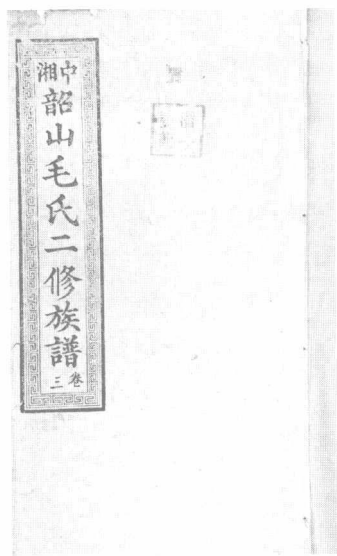 中湘
韶山毛氏二修族譜
卷三